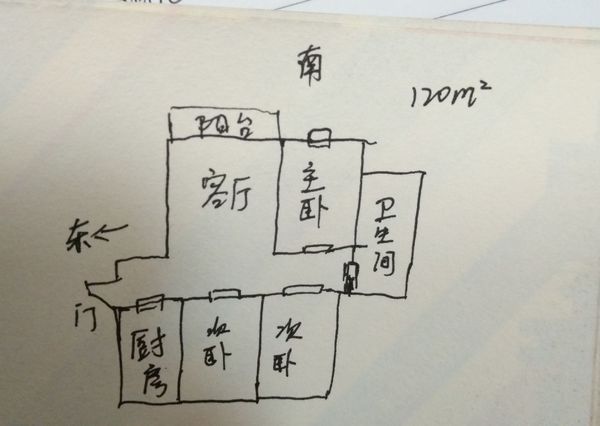 南
120m²
阳台
客厅
主卧
卫生间
东
门
厨房
次卧
次卧